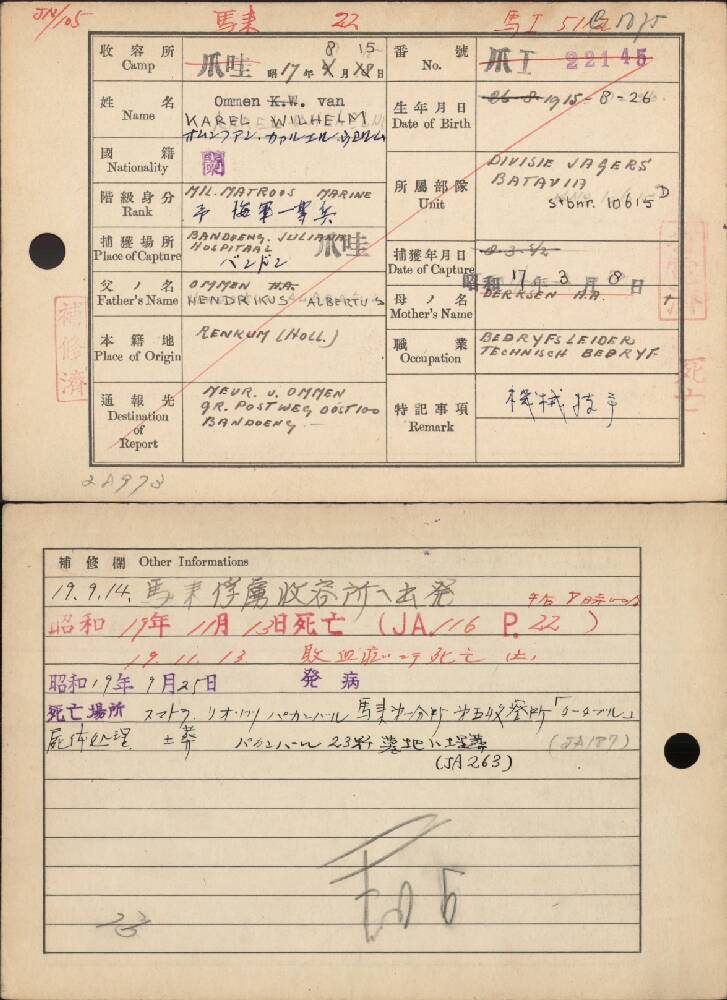 JN/105 馬来 22 馬I
収容所 Camp 爪哇 昭17年8月15日
番号 No. 爪I 22145
姓名 Name Ommen K.W. van
KAREL WILHELM
国籍 Nationality 蘭
生年月日 Date of Birth 26-8-1915-8-26
階級身分 Rank MIL. MATROOS MARINE
海軍一等兵
所属部隊 Unit DIVISIE JAGERS
BATAVIA
stbnr. 10615 D
捕獲場所 Place of Capture BANDOENG. JULIANA
HOSPITAAL 爪哇
バンドン
捕獲年月日 Date of Capture 8-3-
昭和17年3月8日
父ノ名 Father's Name OMMEN H.A.
HENDRIKUS ALBERTUS
母ノ名 Mother's Name DERKSEN A.A.
本籍地 Place of Origin RENKUM (HOLL.)
職業 Occupation BEDRYFSLEIDER
TECHNISCH BEDRYF
通報先 Destination of Report MEVR. V. OMMEN
GR. POSTWEG OOST 100
BANDOENG
特記事項 Remark 機械技手
補修済
死亡
補修欄 Other Informations
19.9.14. 馬来俘虜収容所へ出発
昭和19年11月13日死亡 (JA.116 P.22)
19.11.13 敗血症 死亡
昭和19年9月25日 発病
死亡場所 スマトラ パカンバール 馬来
屍体処理 土葬 パカンバール 23粁 墓地ニ埋葬 (JA187)
(JA263)